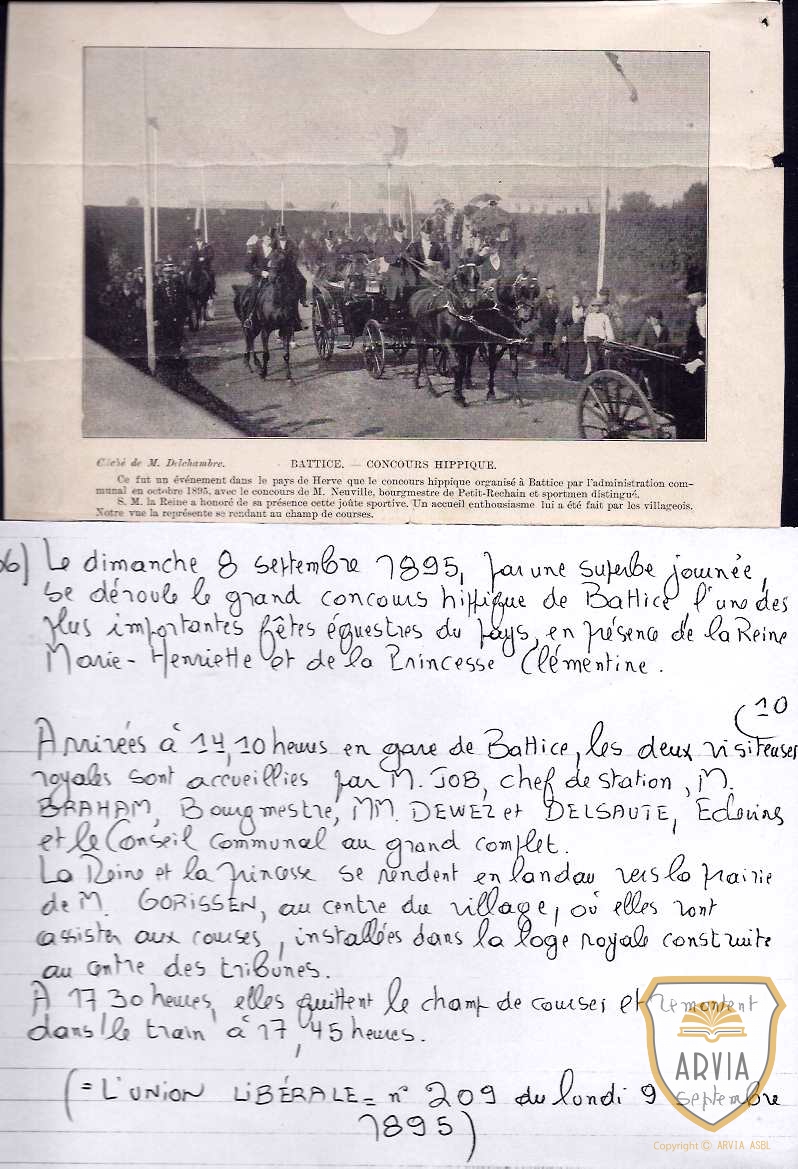 Cliché de M. Delchambre.
BATTICE. — CONCOURS HIPPIQUE.
Ce fut un événement dans le pays de Herve que le concours hippique organisé à Battice par l'administration com-
munal en octobre 1895, avec le concours de M. Neuville, bourgmestre de Petit-Rechain et sportmen distingué.
S. M. la Reine a honoré de sa présence cette joûte sportive. Un accueil enthousiasme lui a été fait par les villageois.
Notre vue la représente se rendant au champ de courses.
6) Le dimanche 8 septembre 1895, par une superbe journée,
se déroule le grand concours hippique de Battice l'une des
plus importantes fêtes équestres du pays, en présence de la Reine
Marie-Henriette et de la Princesse Clémentine.
(10
Arrivées à 14,10 heures en gare de Battice, les deux visiteuses
royales sont accueillies par M. JOB, chef de station, M.
BRAHAM, Bourgmestre, MM. DEWEZ et DELSAUTE, Echevins
et le Conseil Communal au grand complet.
La Reine et la princesse se rendent en landau vers la prairie
de M. GORISSEN, au centre du village, où elles vont
assister aux courses, installées dans la loge royale construite
au centre des tribunes.
A 17 30 heures, elles quittent le champ de courses et remontent
dans le train à 17,45 heures.
(= L'UNION LIBÉRALE = n° 209 du lundi 9 septembre
1895)
ARVIA
Copyright © ARVIA ASBL